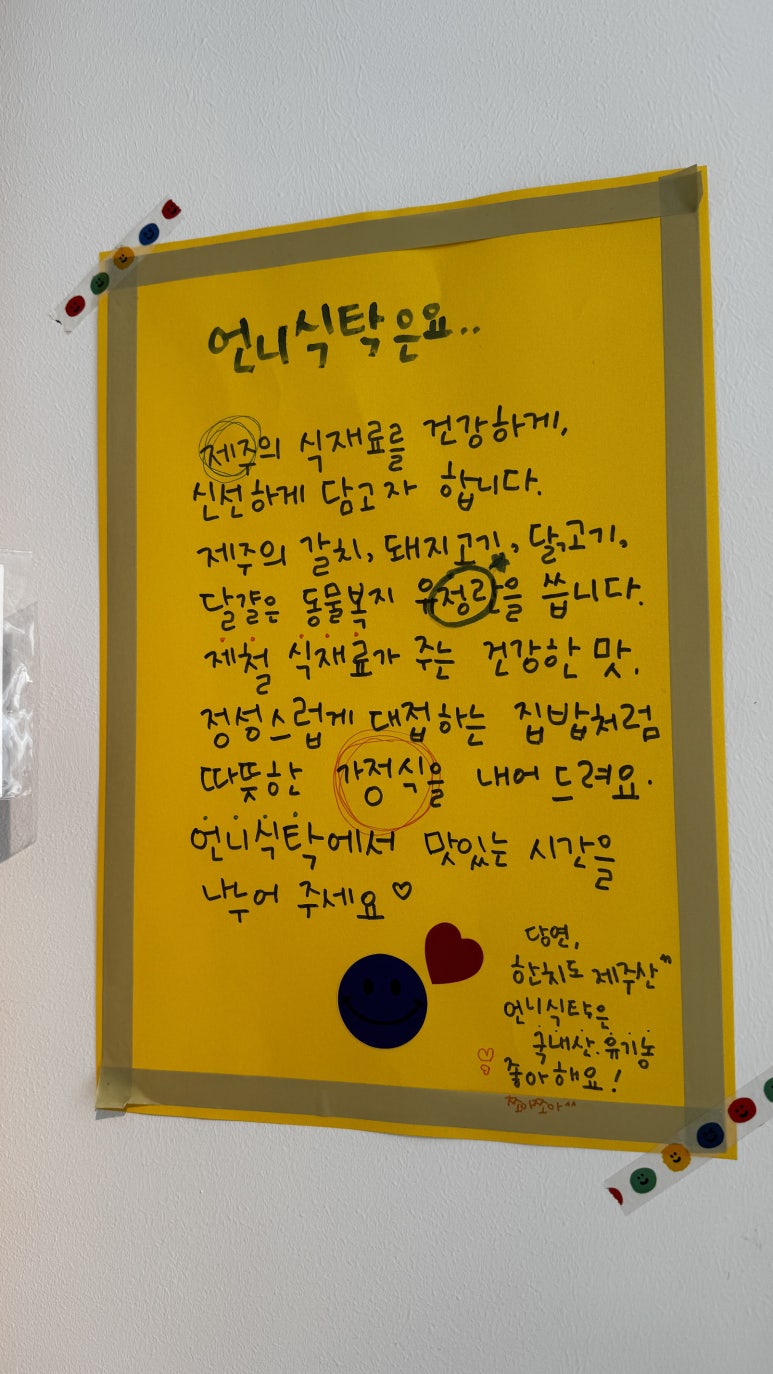 언니식탁은요..
제주의 식재료를 건강하게,
신선하게 담고자 합니다.
제주의 갈치, 돼지고기, 닭고기,
달걀은 동물복지 유정란을 씁니다.
제철 식재료가 주는 건강한 맛.
정성스럽게 대접하는 집밥처럼
따뜻한 가정식을 내어 드려요.
언니식탁에서 맛있는 시간을
나누어 주세요♡
당연,
한치도 제주산^^
언니식탁은
국내산.유기농
좋아해요!